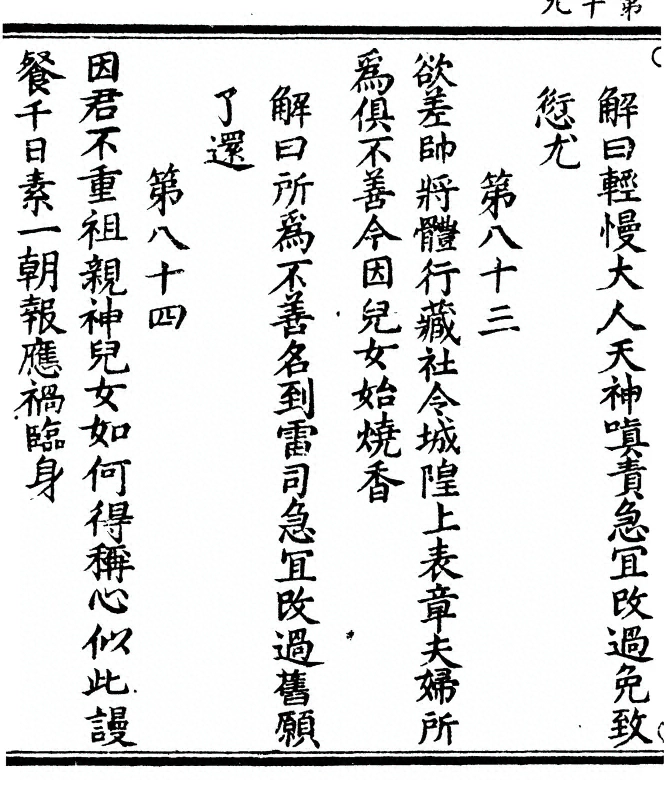 第十九
解曰輕慢大人天神嗔責急冝改過免致
愆尤
第八十三
欲差帥將體行藏社令城隍上表章夫婦所
爲俱不善今因兒女始燒香
解曰所爲不善名到雷司急冝改過舊願
了還
第八十四
因君不重祖親神兒女如何得稱心似此謾
餐千日素一朝報應禍臨身